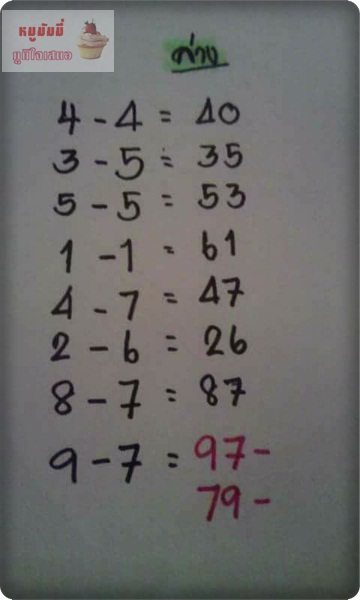 หมูมัมมี่
มูมีใจเสมอ
ล่าง
4 - 4 = 40
3 - 5 = 35
5 - 5 = 53
1 - 1 = 61
4 - 7 = 47
2 - 6 = 26
8 - 7 = 87
9 - 7 = 97-
79-